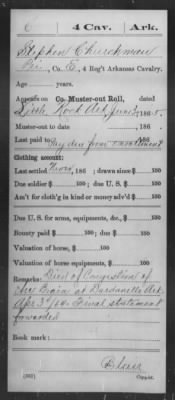 C 4 Cav. Ark.
Stephen Churchman
Pvt., Co. E, 4 Reg't Arkansas Cavalry.
Age years.
Appears on Co. Muster-out Roll, dated
Little Rock Ark, June 30, 1865.
Muster-out to date , 186 .
Last paid to Pay due from enrollment
Clothing account:
Last settled Never, 186 ; drawn since $ 100
Due soldier $ 100; due U. S. $ 100
Am't for cloth'g in kind or money adv'd $ 100
Due U. S. for arms, equipments, &c., $ 100
Bounty paid $ 100; due $ 100
Valuation of horse, $ 100
Valuation of horse equipments, $ 100
Remarks: Died of Congestion of
the Brain at Dardanelle Ark.
Apr 3rd/64. Final statement
forwarded
Book mark:
Copyist.